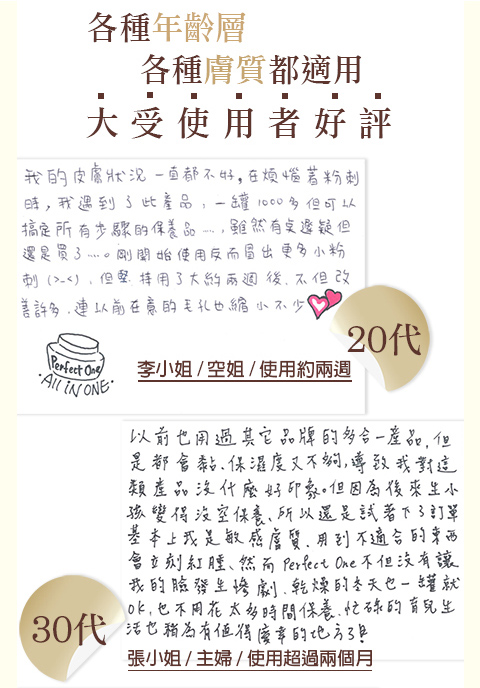 各種年齡層
各種膚質都適用
大受使用者好評
我的皮膚狀況一直都不好，在煩惱著粉刺
時，我遇到了此產品，一罐1000多但可以
搞定所有步驟的保養品……，雖然有點遲疑但
還是買了……。剛開始使用反而冒出更多小粉
刺(>_<)，但堅持用了大約兩週後，不但改
善許多，連以前在意的毛孔也縮小不少
20代
Perfect One
ALL iN ONE
李小姐 / 空姐 / 使用約兩週
以前也用過其它品牌的多合一產品，但
是都會黏、保濕度又不夠，導致我對這
類產品沒什麼好印象。但因為後來生小
孩變得沒空保養、所以還是試著下了訂單
基本上我是敏感膚質，用到不適合的東西
會立刻紅腫、然而Perfect One不但沒有讓
我的臉發生慘劇，乾燥的冬天也一罐就
OK，也不用花太多時間保養，忙碌的育兒生
活也稍為有值得慶幸的地方了!!
30代
張小姐 / 主婦 / 使用超過兩個月